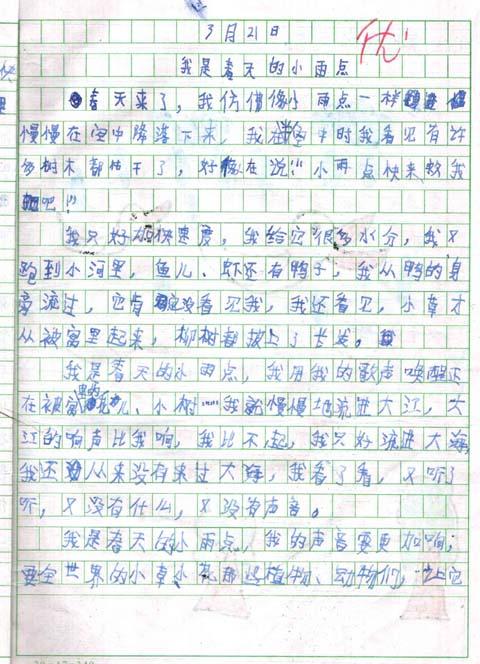 3月21日
优
我是春天的小雨点
春天来了，我仿佛像小雨点一样
慢慢在空中降落下来，我在空中时我看见有许
多树木都枯干了，好像在说“小雨点快来救我
吧！”
我只好加快速度，我给它很多水分，我又
跑到小河里，鱼儿、虾还有鸭子，我从鸭的身
旁流过，它有没看见我，我还看见，小草才
从被窝里起来，柳树都披上了长发。
我是春天的小雨点，我用我的歌声唤醒还
在被窝里的儿、小树……我就慢慢地流进大江，大
江的响声比我响，我比不起，我只好流进大海
我还从来没有来过大海，我看了看，又听了
听，又没有什么，又没有声音。
我是春天的小雨点，我的声音要更加响，
要全世界的小草小花那些植物、动物们，让它